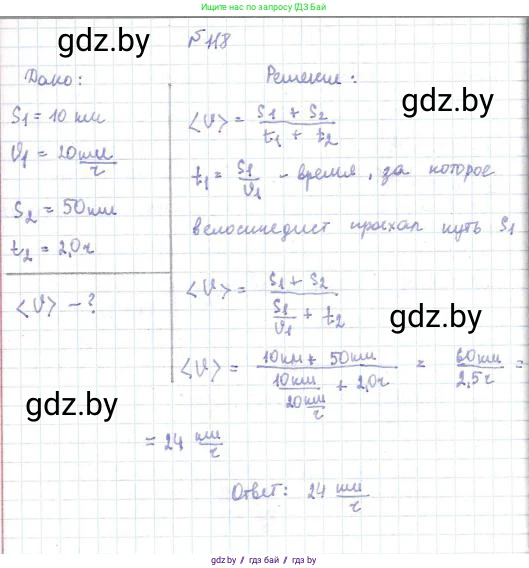 посмотри правильный ответ и получи 10 баллов с ГДЗ Бай
gdz.by
№118
Дано:
S1 = 10 км
υ1 = 20 км/ч
S2 = 50 км
t2 = 2,0 ч
<υ> - ?
Решение:
gdz.by
<υ> = (S1 + S2)/(t1 + t2)
t1 = S1/υ1 - время, за которое
велосипедист проехал путь S1
<υ> = (S1 + S2)/(S1/υ1 + t2)
gdz.by
<υ> = (10 км + 50 км)/(10 км/20 км/ч + 2,0 ч) = 60 км/2,5 ч =
gdz.by
= 24 км/ч
Ответ: 24 км/ч
gdz.by / гдз бай / gdz.by / гдз бай